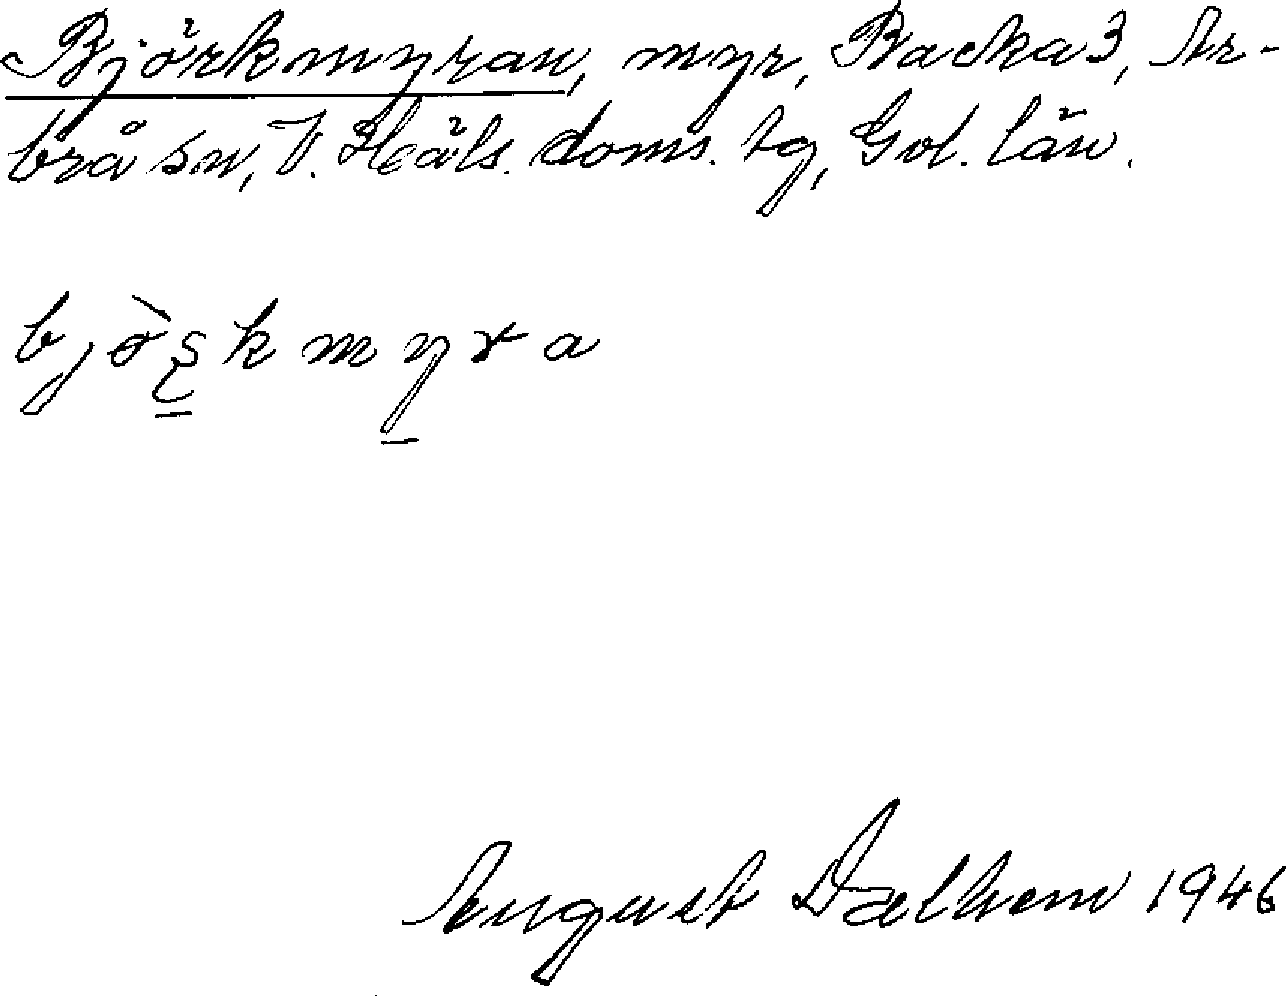 Björkmyran, myr, Backa 3, Ar-
brå sn, V. Häls. doms. tg, Gvl. län.
bjòrkmyra
August Dalhem 1946